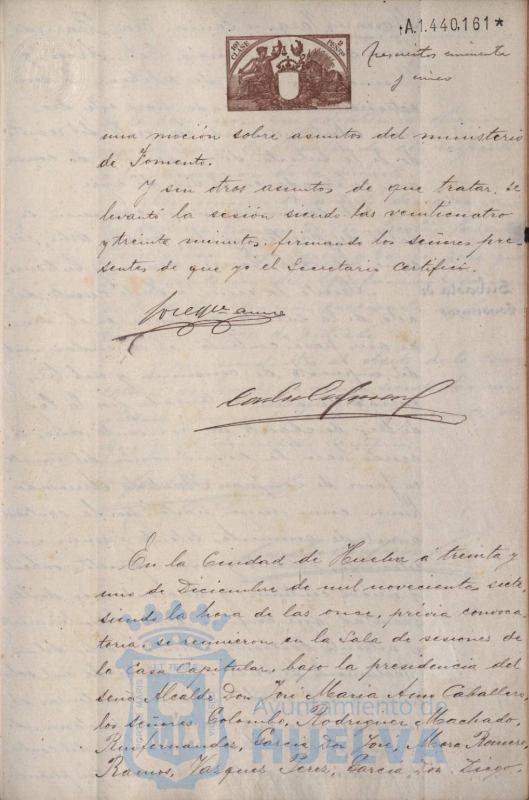 A.1.440.161*
10ª CLASE
PESETAS
y cinco
una moción sobre asuntos del ministerio
de Fomento.
Y sin otros asuntos de que tratar, se
levantó la sesión siendo las veinticuatro
y treinta minutos, firmando los señores pre-
sentes de que yo el Secretario certifico.
En la Ciudad de Huelva á treinta y
uno de Diciembre de mil novecientos siete,
siendo la hora de las once, prévia convoca-
toria, se reunieron en la Sala de sesiones de
la Casa Capitular, bajo la presidencia del
señor Alcalde Don José Maria Amo Caballero,
los señores Colombo, Rodriguez Machado,
Ruifernandez, Garcia Don José, Mora Romero,
Ramos, Vazquez Perez, Garcia Don Diego,
Ayuntamiento de
HUELVA